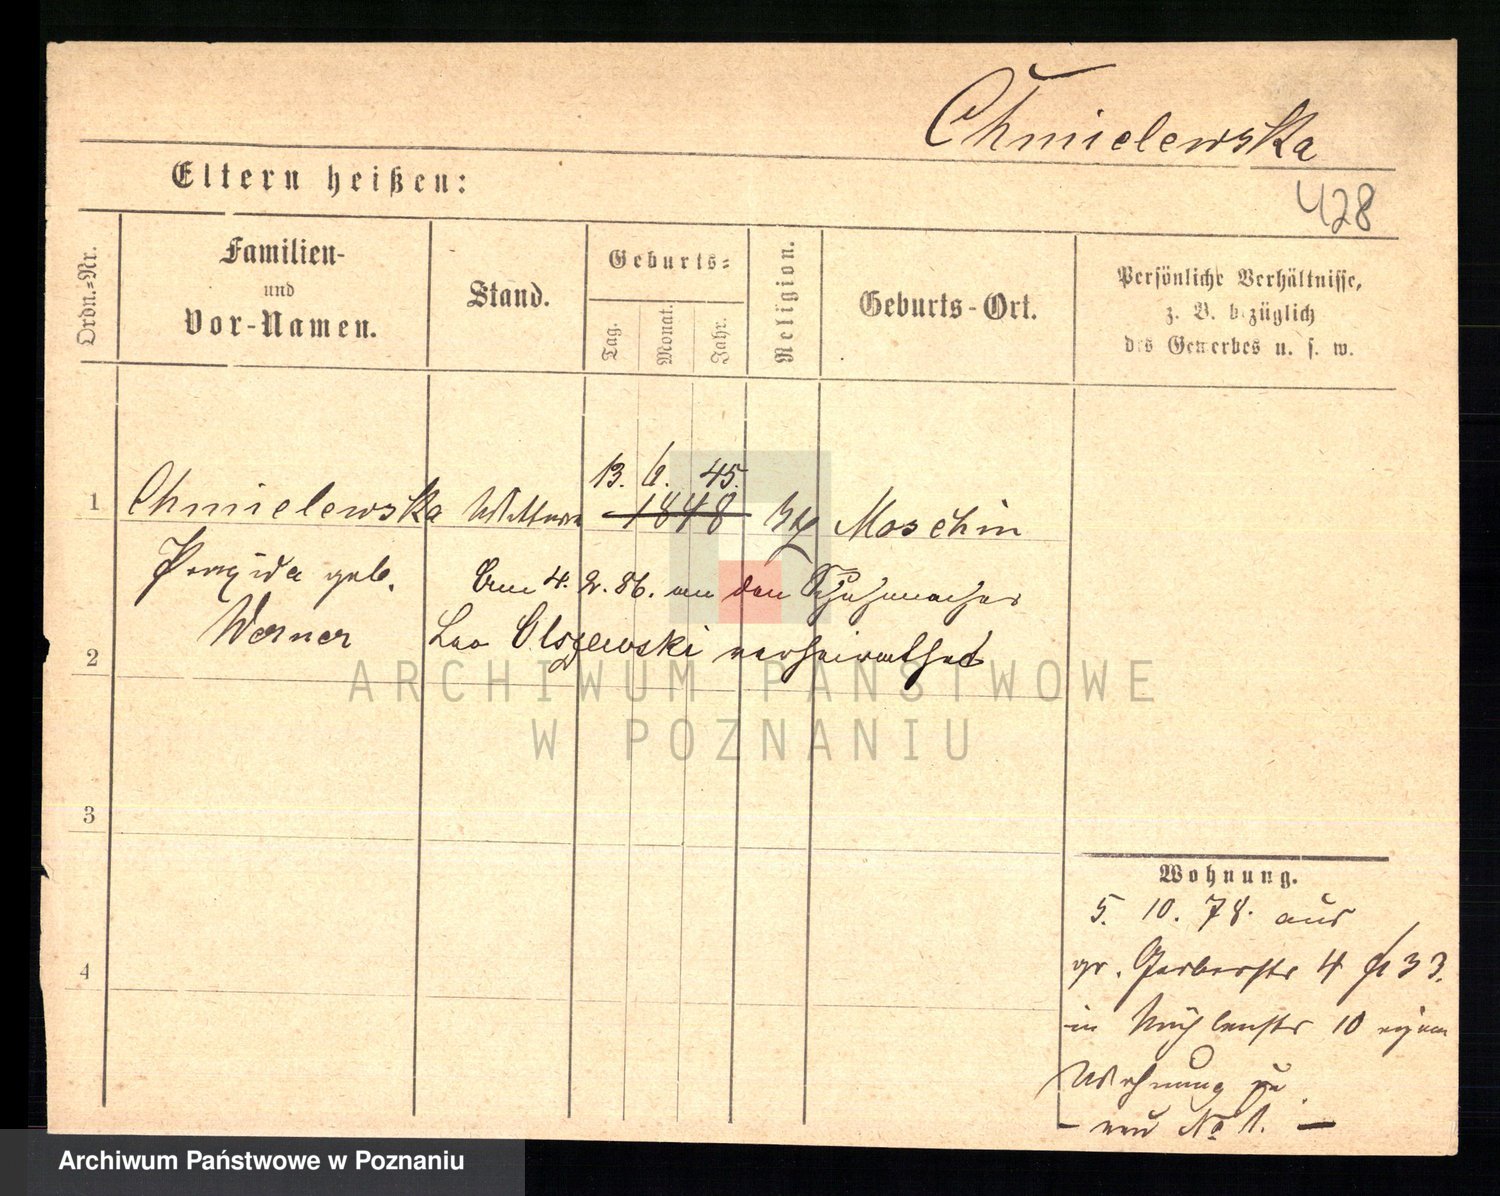 Chmielewska
428
Eltern heißen:
Ordn.=Nr.
Familien-
und
Vor-Namen.
Stand.
Geburts=
Tag.
Monat.
Jahr.
Religion.
Geburts-Ort.
Persönliche Verhältnisse,
z. B. bezüglich
des Gewerbes u. s. w.
13. 6. 45.
1 Chmielewska Wittwe 1848 Moschin
geb. Am 4. 2. 86. an den Schuhmacher
Werner Leo Olszewski verheirathet
2
ARCHIWUM PAŃSTWOWE
W POZNANIU
3
4
Wohnung.
5. 10. 78. aus
gr. Gerberstr 4 33.
in Mühlenstr 10 eigene
Wohnung zu
neu No 1. —
Archiwum Państwowe w Poznaniu